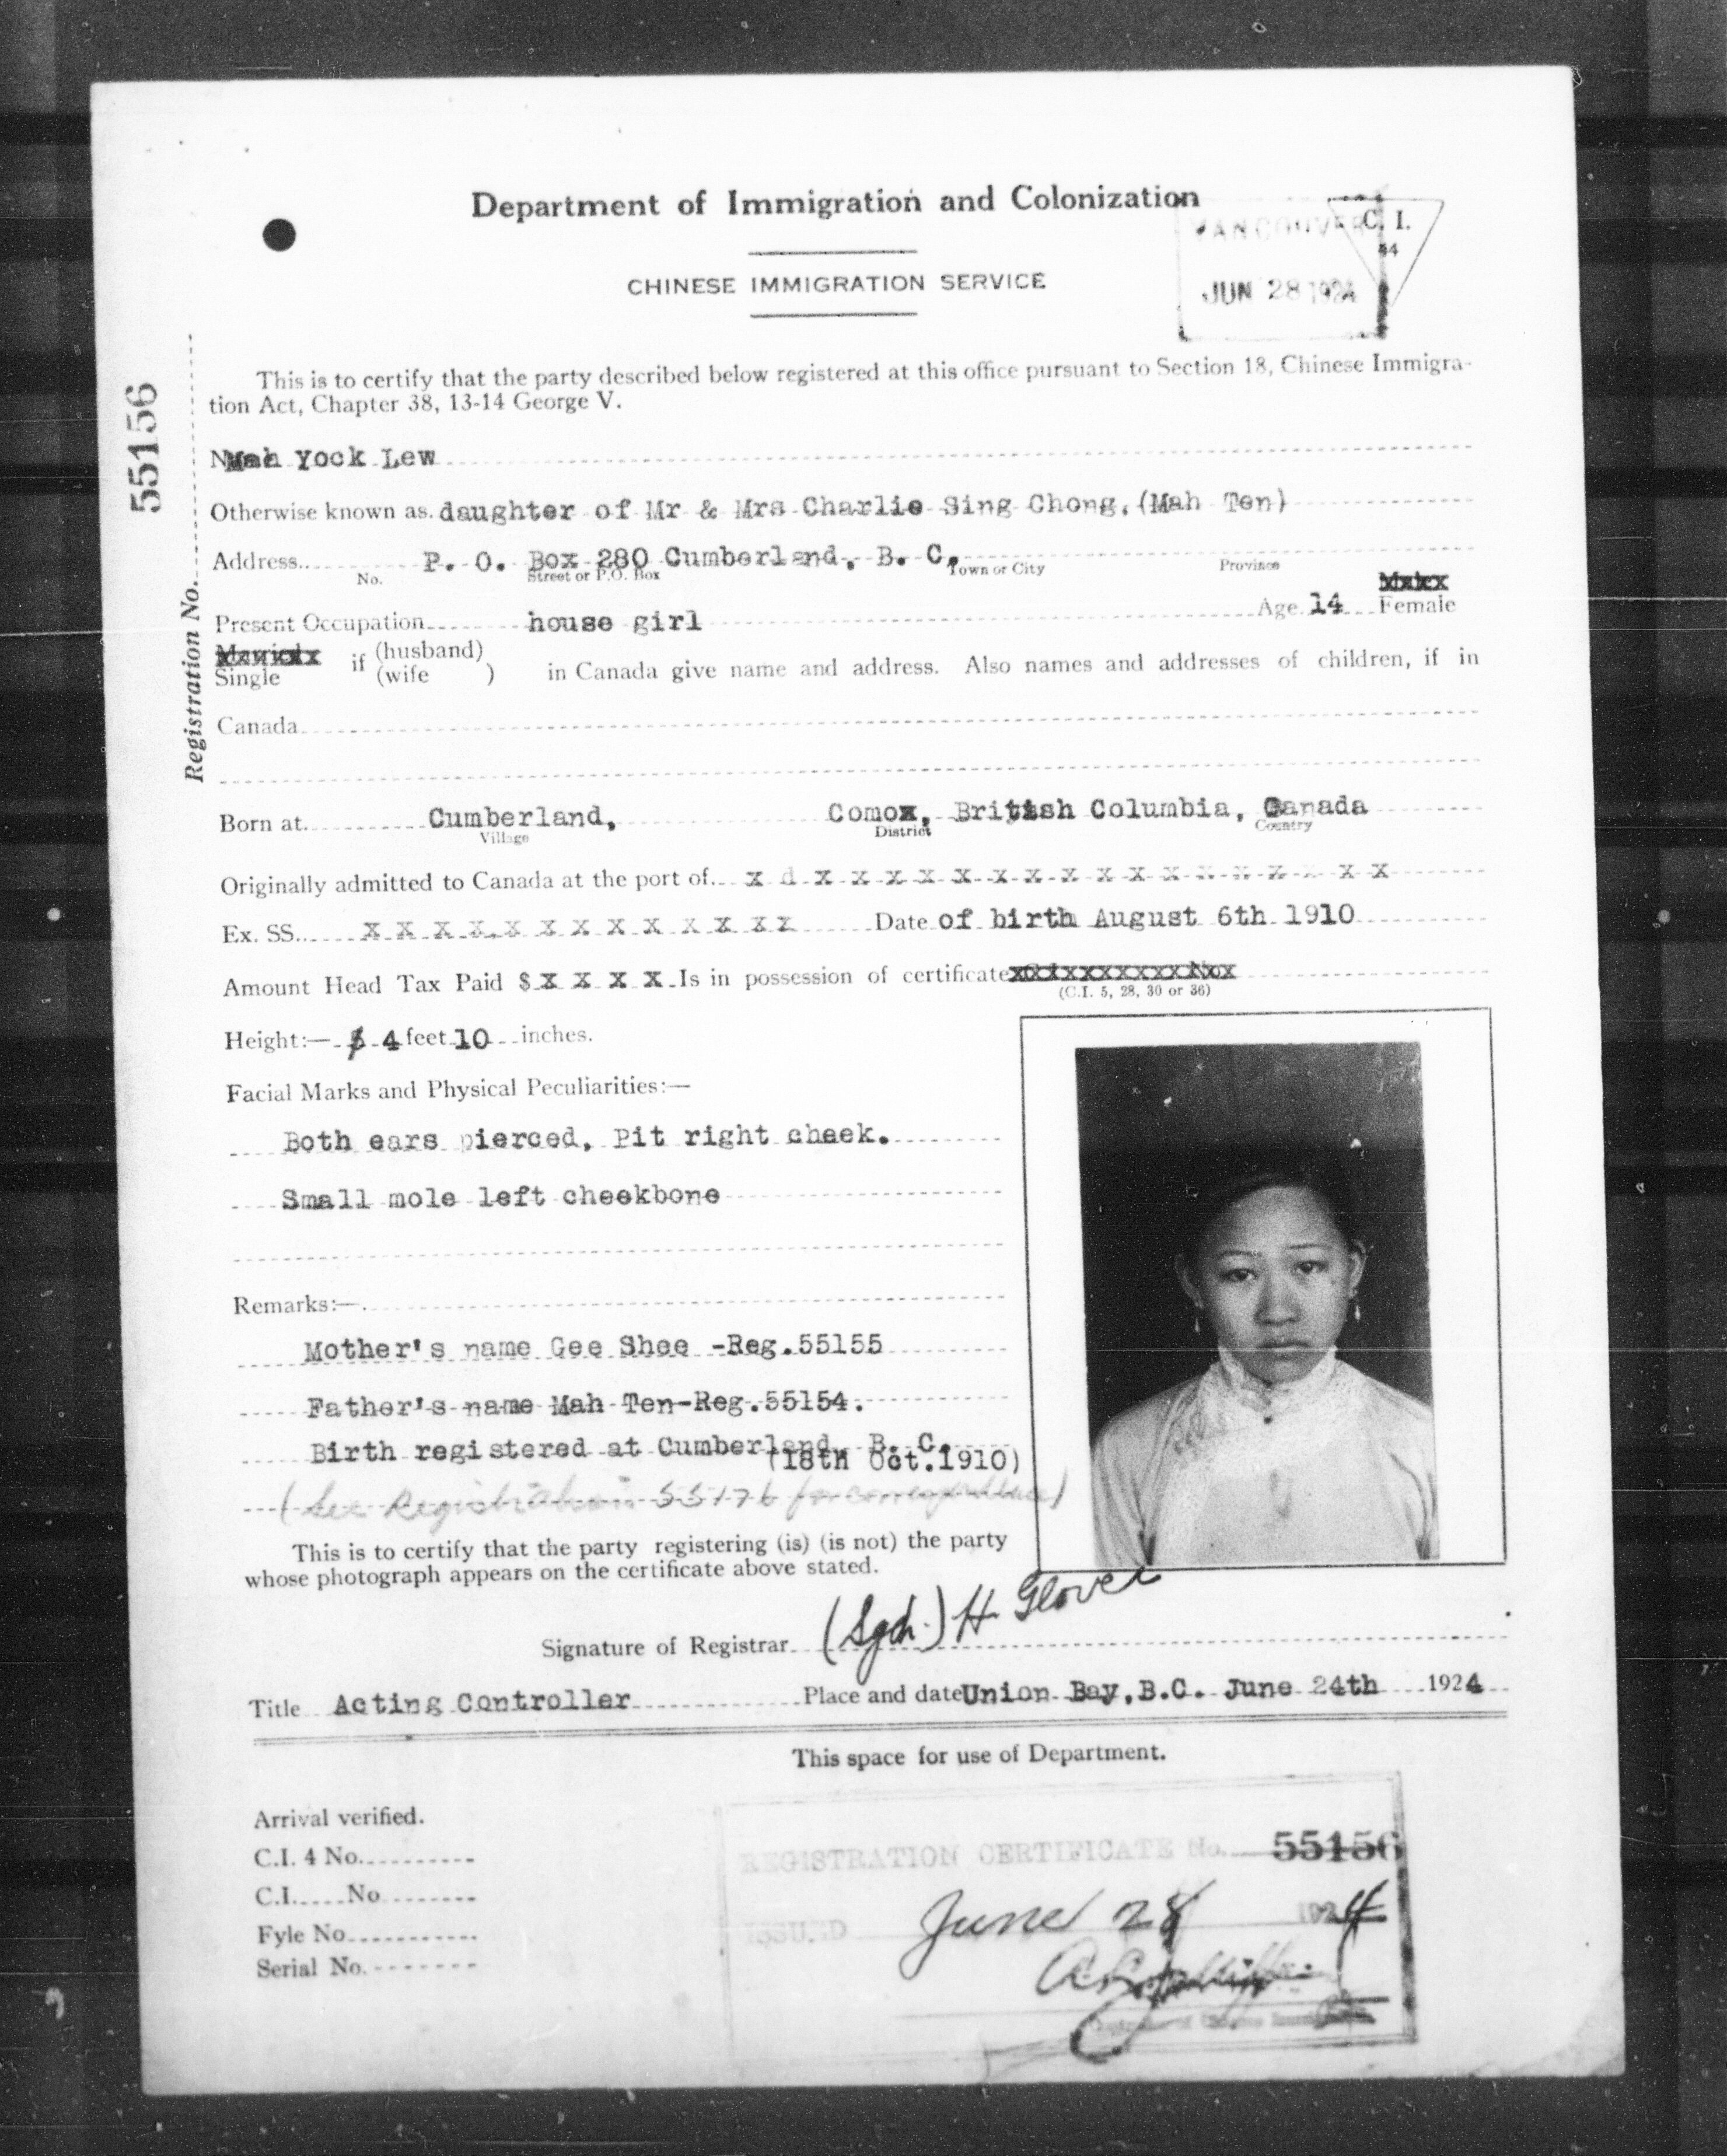 Department of Immigration and Colonization
CHINESE IMMIGRATION SERVICE
VANCOUVER
JUN 28 1924
C. I.
44
Registration No.
55156
This is to certify that the party described below registered at this office pursuant to Section 18, Chinese Immigra-
tion Act, Chapter 38, 13-14 George V.
Mah Yock Lew
Otherwise known as daughter of Mr & Mrs Charlie Sing Chong, (Mah Ten)
Address P. O. Box 280 Cumberland, B. C,
No. Street or P.O. Box Town or City Province
Present Occupation house girl Age 14 Female
Single if (husband) (wife ) in Canada give name and address. Also names and addresses of children, if in
Canada
Born at Cumberland, Comox, British Columbia, Canada
Village District Country
Originally admitted to Canada at the port of x d x x x x x x x x x x x x x x x x x
Ex. SS. x x x x x x x x x x x x x Date of birth August 6th 1910
Amount Head Tax Paid $ x x x x Is in possession of certificate
(C.I. 5, 28, 30 or 36)
Height:— 4 feet 10 inches.
Facial Marks and Physical Peculiarities:—
Both ears pierced, Pit right cheek.
Small mole left cheekbone
Remarks:—
Mother's name Gee Shee -Reg.55155
Father's name Mah Ten-Reg.55154.
Birth registered at Cumberland, B. C.
(18th Oct.1910)
(See Registration 55176 for correspondence)
This is to certify that the party registering (is) (is not) the party
whose photograph appears on the certificate above stated.
Signature of Registrar (Sgd.) H Glover
Title Acting Controller Place and date Union Bay, B.C. June 24th 1924
This space for use of Department.
Arrival verified.
C.I. 4 No.
C.I. No
Fyle No
Serial No.
REGISTRATION CERTIFICATE No. 55156
ISSUED June 28 1924